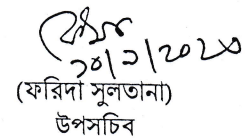 ২০/২/২০২৩
(ফরিদা সুলতানা)
উপসচিব